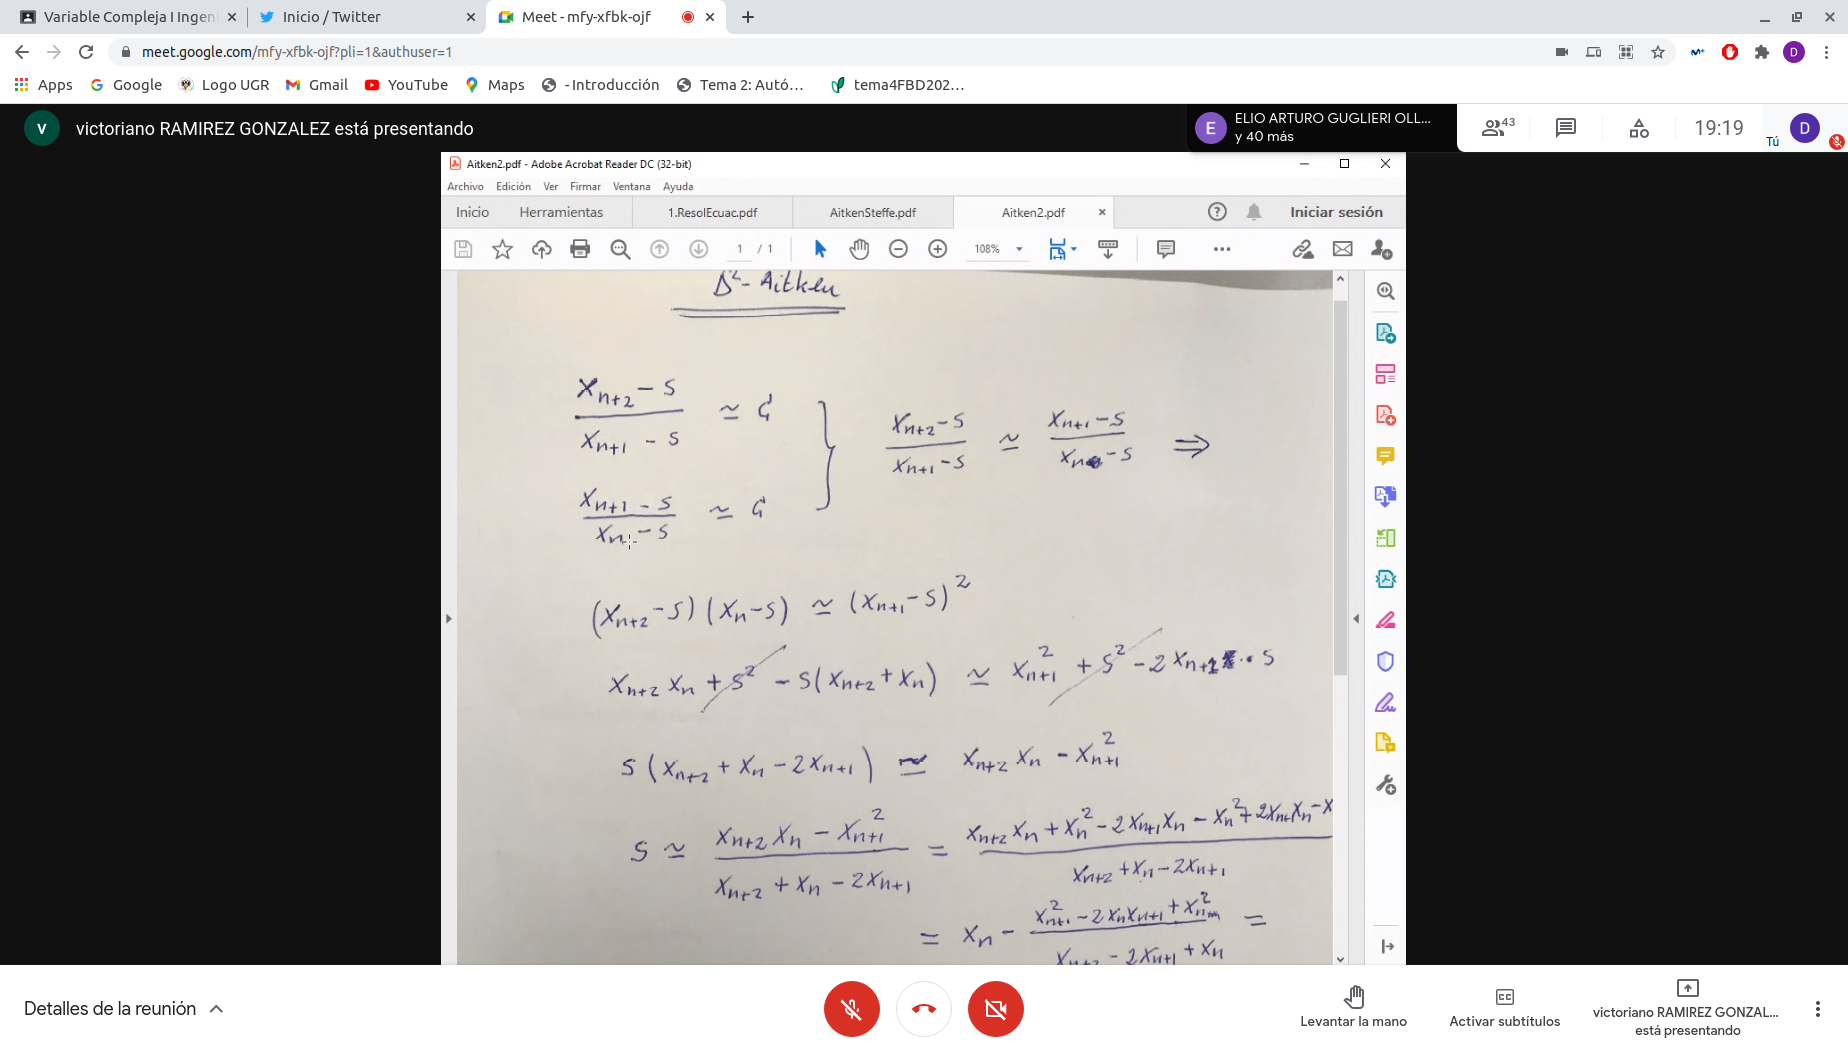 Variable Compleja I Ingeni
Inicio / Twitter
Meet - mfy-xfbk-ojf
meet.google.com/mfy-xfbk-ojf?pli=1&authuser=1
Apps Google Logo UGR Gmail YouTube Maps - Introducción Tema 2: Autó... tema4FBD202...
V victoriano RAMIREZ GONZALEZ está presentando
E ELIO ARTURO GUGLIERI OLL...
y 40 más
43
19:19
Tú
D
Aitken2.pdf - Adobe Acrobat Reader DC (32-bit)
Archivo Edición Ver Firmar Ventana Ayuda
Inicio Herramientas 1.ResolEcuac.pdf AitkenSteffe.pdf Aitken2.pdf Iniciar sesión
1 / 1 108%
Δ²-Aitken
(xₙ₊₂ - s)/(xₙ₊₁ - s) ≃ C
(xₙ₊₁ - s)/(xₙ - s) ≃ C
} (xₙ₊₂ - s)/(xₙ₊₁ - s) ≃ (xₙ₊₁ - s)/(xₙ - s) ⇒
(xₙ₊₂ - s)(xₙ - s) ≃ (xₙ₊₁ - s)²
xₙ₊₂ xₙ + s² - s(xₙ₊₂ + xₙ) ≃ xₙ₊₁² + s² - 2xₙ₊₁ · s
s(xₙ₊₂ + xₙ - 2xₙ₊₁) ≃ xₙ₊₂ xₙ - xₙ₊₁²
s ≃ (xₙ₊₂ xₙ - xₙ₊₁²)/(xₙ₊₂ + xₙ - 2xₙ₊₁) = (xₙ₊₂ xₙ + xₙ² - 2xₙ₊₁xₙ - xₙ² + 2xₙ₊₁xₙ - x)/(xₙ₊₂ + xₙ - 2xₙ₊₁)
= xₙ - (xₙ₊₁² - 2xₙxₙ₊₁ + xₙ²)/(xₙ₊₂ - 2xₙ₊₁ + xₙ) =
Detalles de la reunión
Levantar la mano
Activar subtítulos
victoriano RAMIREZ GONZAL...
está presentando